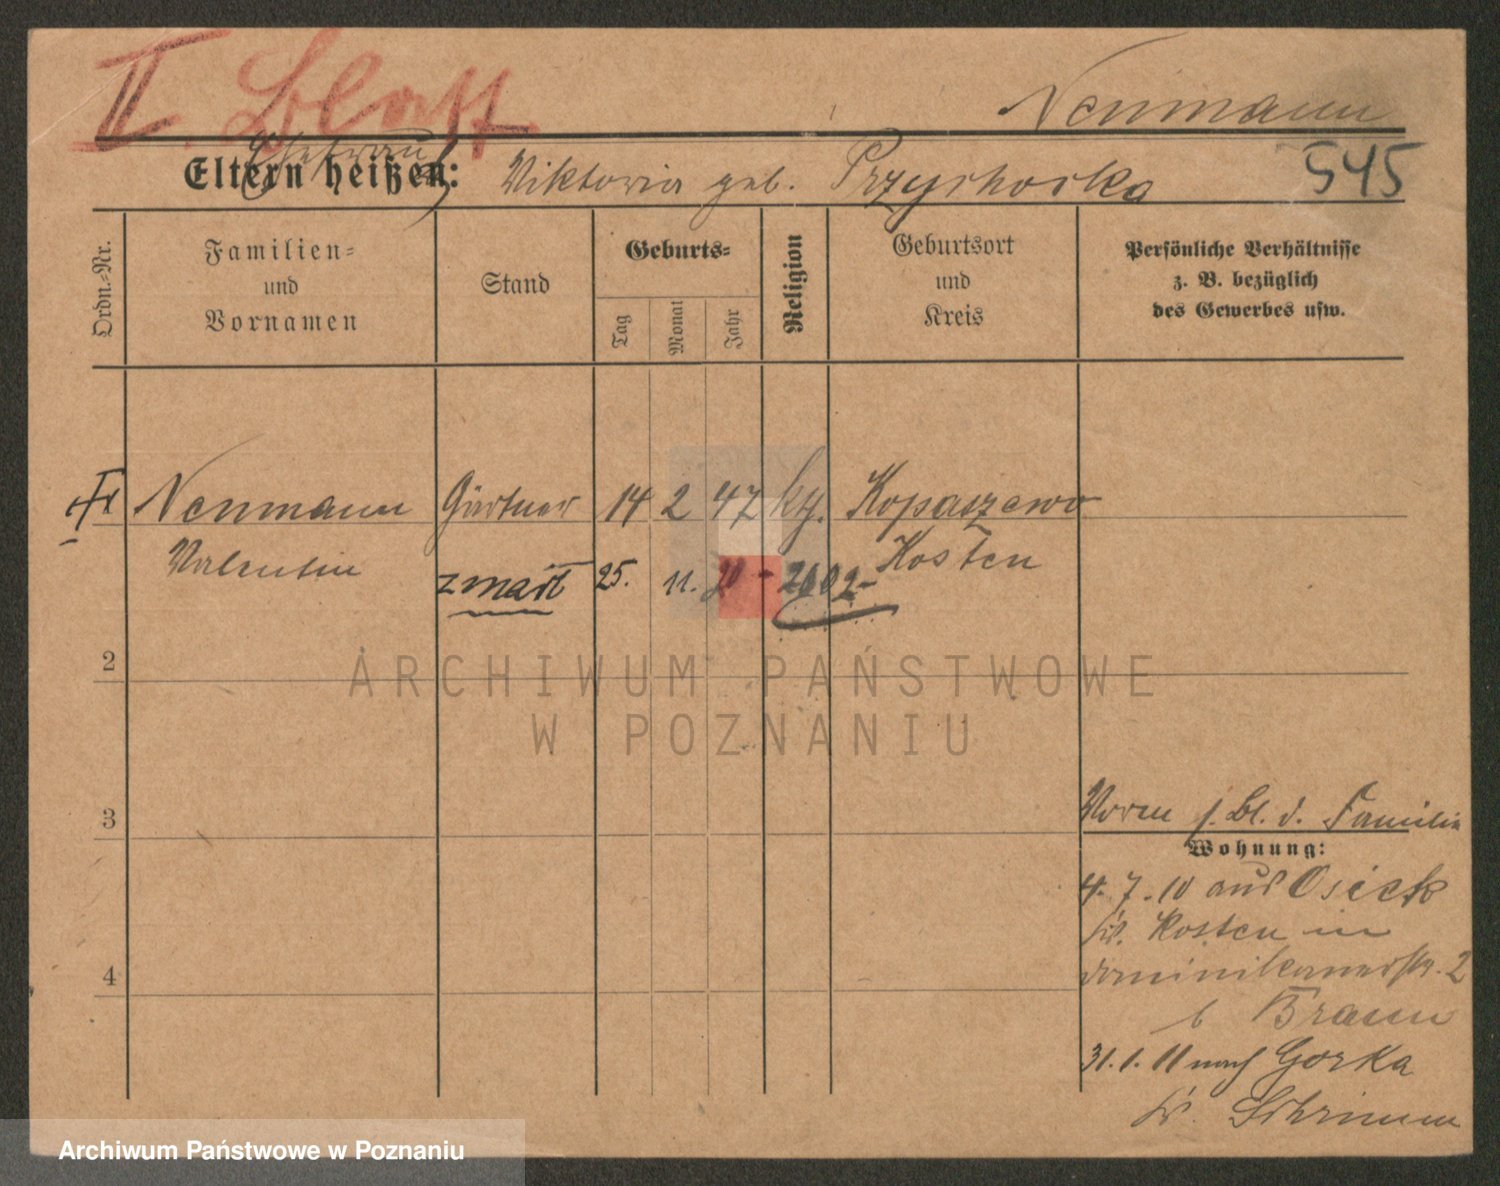 II. Blatt
Neumann
Ehefrau
Eltern heißen: Viktoria geb. Przychocka 545
Ordn.-Nr.
Familien-
und
Vornamen
Stand
Geburts-
Tag
Monat
Jahr
Religion
Geburtsort
und
Kreis
Persönliche Verhältnisse
z. B. bezüglich
des Gewerbes usw.
Neumann Gärtner 14 2 47 kth. Kopaszewo
Valentin Kosten
zmarł 25. 11. 20 - 2602-
2
3
4
Voren s. Bl. d. Familie
Wohnung:
4.7.10 aus Osiek
Kr. Kosten in
Dominikanerstr. 2
b Braun
31.1.11 nach Gorka
Kr. Schrimm
ARCHIWUM PAŃSTWOWE
W POZNANIU
Archiwum Państwowe w Poznaniu